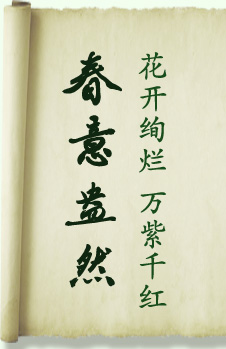 花开绚烂 万紫千红
春意盎然